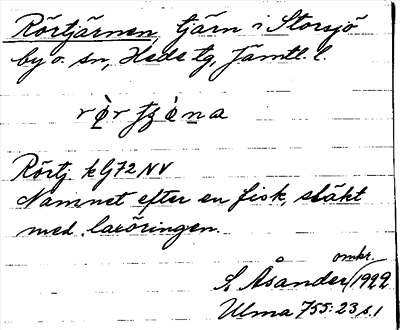 Rörtjärnen, tjärn i Storsjö
by o. sn, Hede tg, Jämtl. l.
Rörtj. kG72NV
Namnet efter en fisk, släkt
med laxöringen.
omkr.
S. Åsander/1922
Ulma 755:23 s.1